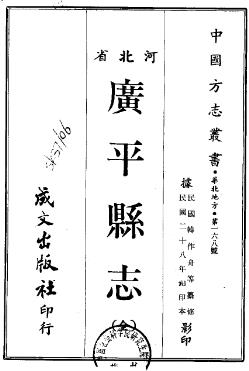 中國方志叢書・華北地方・第一六八號
據民國韓作舟等纂修
民國二十八年鉛印本影印
河北省
廣平縣志
(全)
成文出版社印行